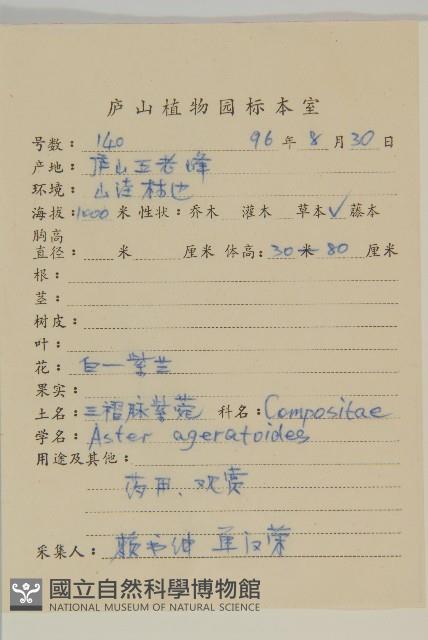 庐山植物园标本室
号数: 140 96年8月30日
产地: 庐山五老峰
环境: 山洼林边
海拔: 1000米 性状: 乔木 灌木 草本✓ 藤本
胸高
直径: 米 厘米 体高: 30米-80厘米
根:
茎:
树皮:
叶:
花: 白—紫兰
果实:
土名: 三褶脉紫菀 科名: Compositae
学名: Aster ageratoides
用途及其他:
药用、观赏
采集人: 赖书绅 单汉荣
國立自然科學博物館
NATIONAL MUSEUM OF NATURAL SCIENCE